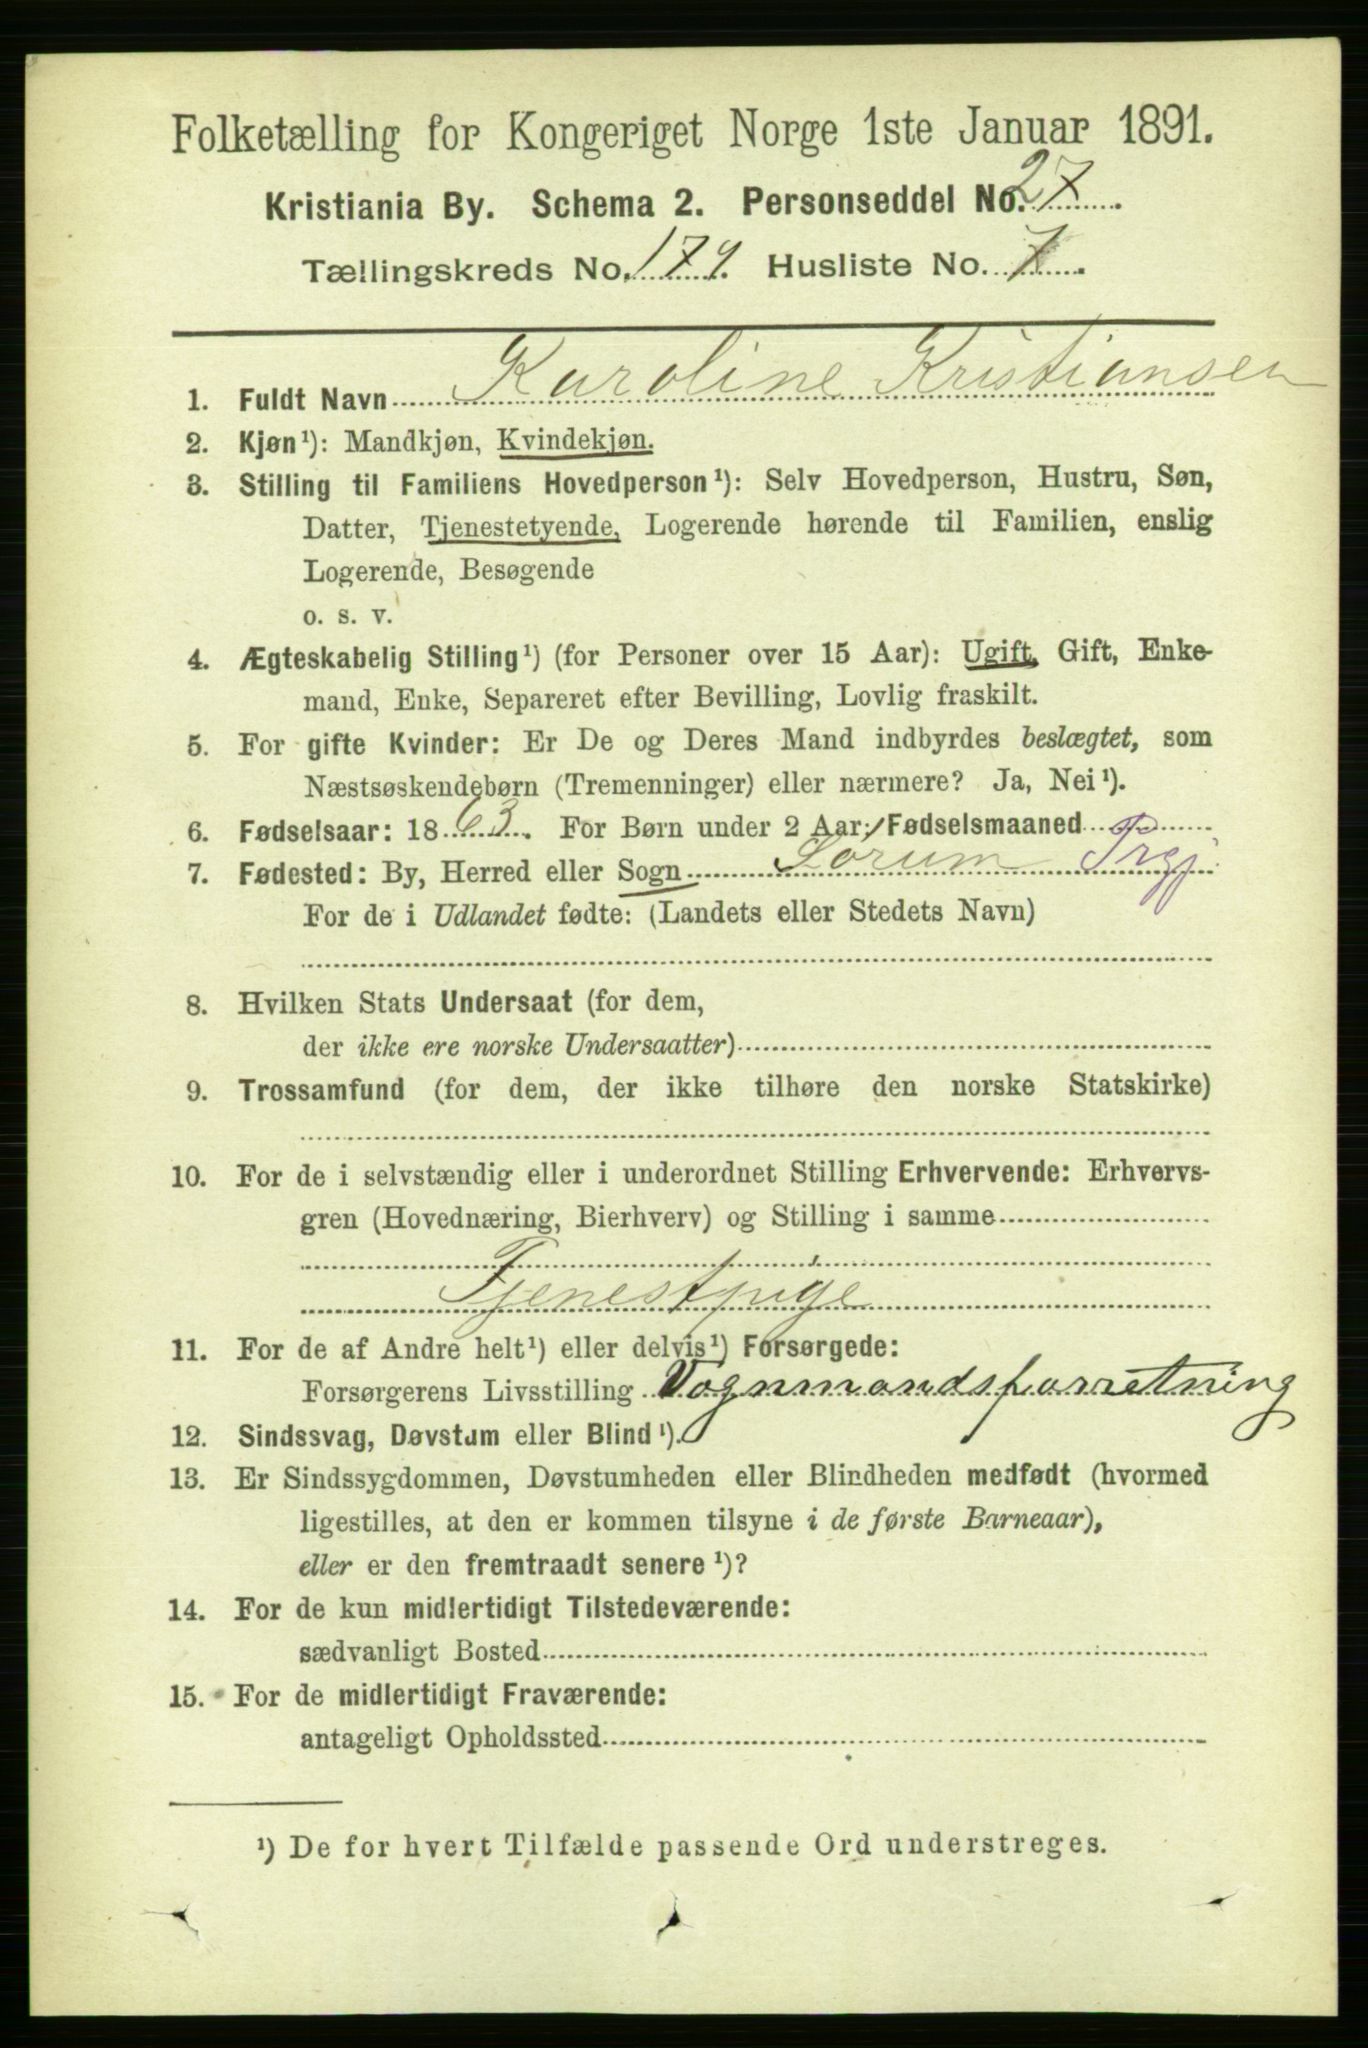 Folketælling for Kongeriget Norge 1ste Januar 1891.
Kristiania By. Schema 2. Personseddel No. 27.
Tællingskreds No. 179. Husliste No. 7.
1. Fuldt Navn Karoline Kristiansen
2. Kjøn¹): Mandkjøn, Kvindekjøn.
3. Stilling til Familiens Hovedperson¹): Selv Hovedperson, Hustru, Søn,
Datter, Tjenestetyende, Logerende hørende til Familien, enslig
Logerende, Besøgende
o. s. v.
4. Ægteskabelig Stilling¹) (for Personer over 15 Aar): Ugift, Gift, Enke-
mand, Enke, Separeret efter Bevilling, Lovlig fraskilt.
5. For gifte Kvinder: Er De og Deres Mand indbyrdes beslægtet, som
Næstsøskendebørn (Tremenninger) eller nærmere? Ja, Nei¹).
6. Fødselsaar: 1863. For Børn under 2 Aar: Fødselsmaaned
7. Fødested: By, Herred eller Sogn Sørum Prgj.
For de i Udlandet fødte: (Landets eller Stedets Navn)
8. Hvilken Stats Undersaat (for dem,
der ikke ere norske Undersaatter)
9. Trossamfund (for dem, der ikke tilhøre den norske Statskirke)
10. For de i selvstændig eller i underordnet Stilling Erhvervende: Erhvervs-
gren (Hovednæring, Bierhverv) og Stilling i samme
Tjenestpige
11. For de af Andre helt¹) eller delvis¹) Forsørgede:
Forsørgerens Livsstilling Vognmandsforretning
12. Sindssvag, Døvstum eller Blind¹).
13. Er Sindssygdommen, Døvstumheden eller Blindheden medfødt (hvormed
ligestilles, at den er kommen tilsyne i de første Barneaar),
eller er den fremtraadt senere¹)?
14. For de kun midlertidigt Tilstedeværende:
sædvanligt Bosted
15. For de midlertidigt Fraværende:
antageligt Opholdssted
¹) De for hvert Tilfælde passende Ord understreges.